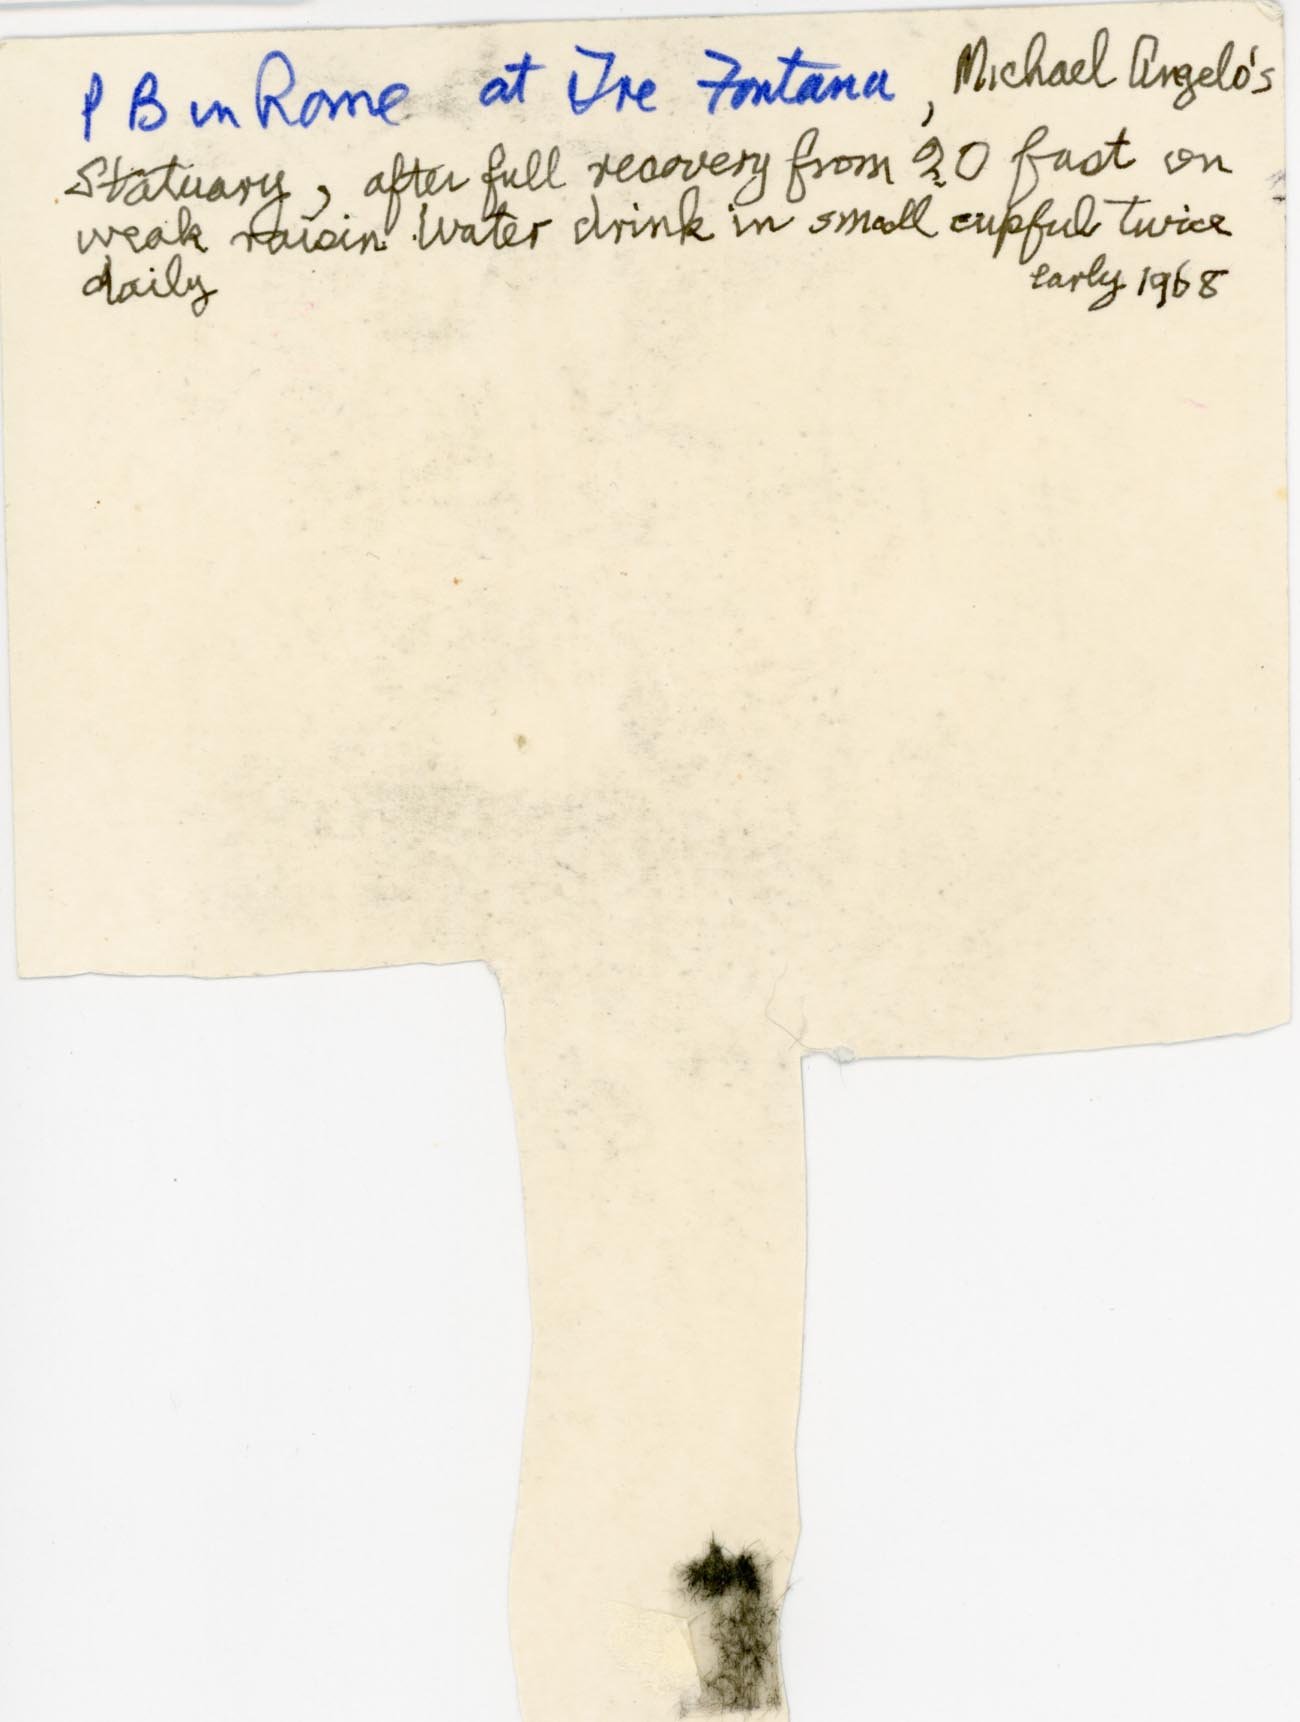 P B in Rome at Tre Fontana, Michael Angelo's
Statuary, after full recovery from 20 fast on
weak raisin water drink in small cupful twice
daily early 1968